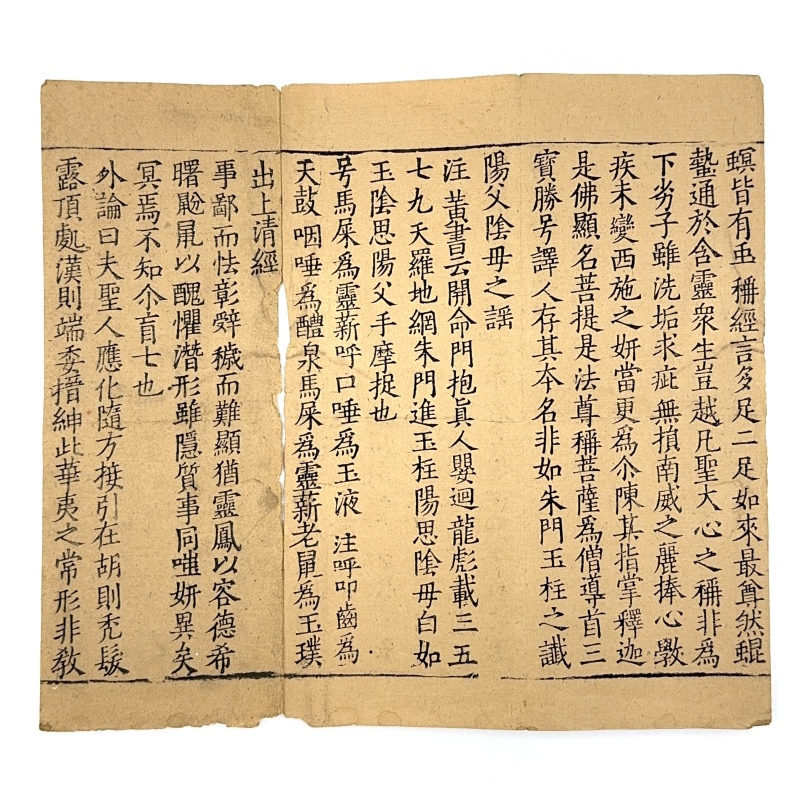 螟皆有 稱經言多足二足如來最尊然蜫
蟄通於含靈衆生豈越凡聖大心之稱非為
下劣子雖洗垢求疵無損南威之麗捧心斆
疾未變西施之妍當更為尒陳其指掌釋迦
是佛顯名菩提是法尊稱菩薩為僧導首三
寶勝号譯人存其夲名非如朱門玉柱之讖
陽父陰母之謠
注 黃書云開命門抱眞人嬰迴龍彪載三五
七九天羅地網朱門進玉柱陽思陰母白如
玉陰思陽父手摩捉也
号馬屎爲靈薪呼口唾爲玉液 注呼叩齒爲
天鼓咽唾爲醴泉馬屎爲靈薪老鼠爲玉璞
出上清經
事鄙而怯彰辤穢而難顯猶靈鳳以容德希
曙 鼠以醜懼潛形雖隱質事同嗤妍異矣
冥焉不知尒盲七也
外論曰夫聖人應化隨方接引在胡則禿髮
露頂處漢則端委搢紳此華夷之常形非教